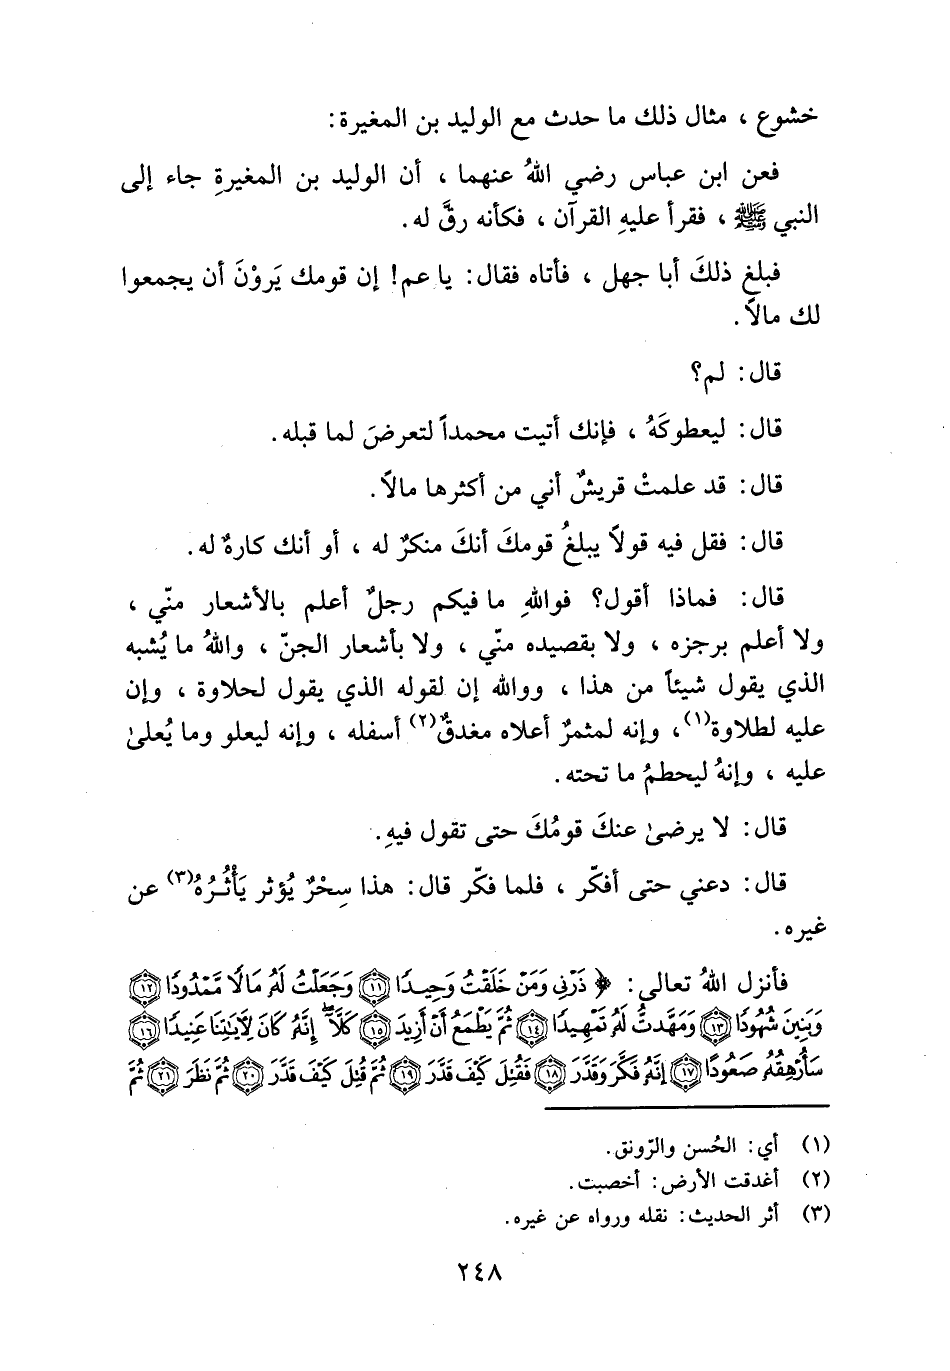 خشوع ، مثال ذلك ما حدث مع الوليد بن المغيرة:
فعن ابن عباس رضي اللهُ عنهما ، أن الوليد بن المغيرةِ جاء إلى
النبي ﷺ ، فقرأ عليهِ القرآن ، فكأنه رقَّ له.
فبلغ ذلكَ أبا جهل ، فأتاه فقال: يا عم! إن قومك يَروْنَ أن يجمعوا
لك مالاً.
قال: لم؟
قال: ليعطوكَهُ ، فإنك أتيت محمداً لتعرضَ لما قبله.
قال: قد علمتْ قريشٌ أني من أكثرها مالاً.
قال: فقل فيه قولاً يبلغُ قومكَ أنكَ منكرٌ له ، أو أنك كارهٌ له.
قال: فماذا أقول؟ فواللهِ ما فيكم رجلٌ أعلم بالأشعار منّي ،
ولا أعلم برجزه ، ولا بقصيده منّي ، ولا بأشعار الجنّ ، واللهُ ما يُشبه
الذي يقول شيئاً من هذا ، ووالله إن لقوله الذي يقول لحلاوة ، وإن
عليه لطلاوة(١)، وإنه لمثمرٌ أعلاه مغدقٌ(٢) أسفله ، وإنه ليعلو وما يُعلىٰ
عليه ، وإنهُ ليحطمُ ما تحته.
قال: لا يرضىٰ عنكَ قومُكَ حتى تقول فيهِ.
قال: دعني حتى أفكّر ، فلما فكّر قال: هذا سِحْرٌ يُؤثر يَأْثُرُهُ(٣) عن
غيره.
فأنزل اللهُ تعالى: ﴿ ذَرْنِي وَمَنْ خَلَقْتُ وَحِيدًا ١١ وَجَعَلْتُ لَهُ مَالًا مَّمْدُودًا ١٢
وَبَنِينَ شُهُودًا ١٣ وَمَهَّدتُّ لَهُ تَمْهِيدًا ١٤ ثُمَّ يَطْمَعُ أَنْ أَزِيدَ ١٥ كَلَّا إِنَّهُ كَانَ لِآيَاتِنَا عَنِيدًا ١٦
سَأُرْهِقُهُ صَعُودًا ١٧ إِنَّهُ فَكَّرَ وَقَدَّرَ ١٨ فَقُتِلَ كَيْفَ قَدَّرَ ١٩ ثُمَّ قُتِلَ كَيْفَ قَدَّرَ ٢٠ ثُمَّ نَظَرَ ٢١ ثُمَّ
(١) أي: الحُسن والرّونق.
(٢) أغدقت الأرض: أخصبت.
(٣) أثر الحديث: نقله ورواه عن غيره.
٢٤٨